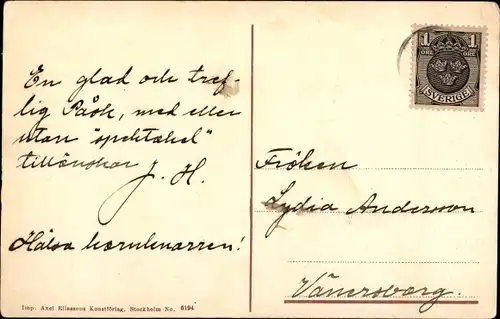 En glad och tref-
lig Påsk, med eller
utan "spektakel"
tillönskar
J. H.
Hälsa barnbarnen!
Imp. Axel Eliassons Konstförlag, Stockholm No. 6194
1 ÖRE 1 ÖRE
SVERIGE
Fröken
Lydia Andersson
Vänersborg.